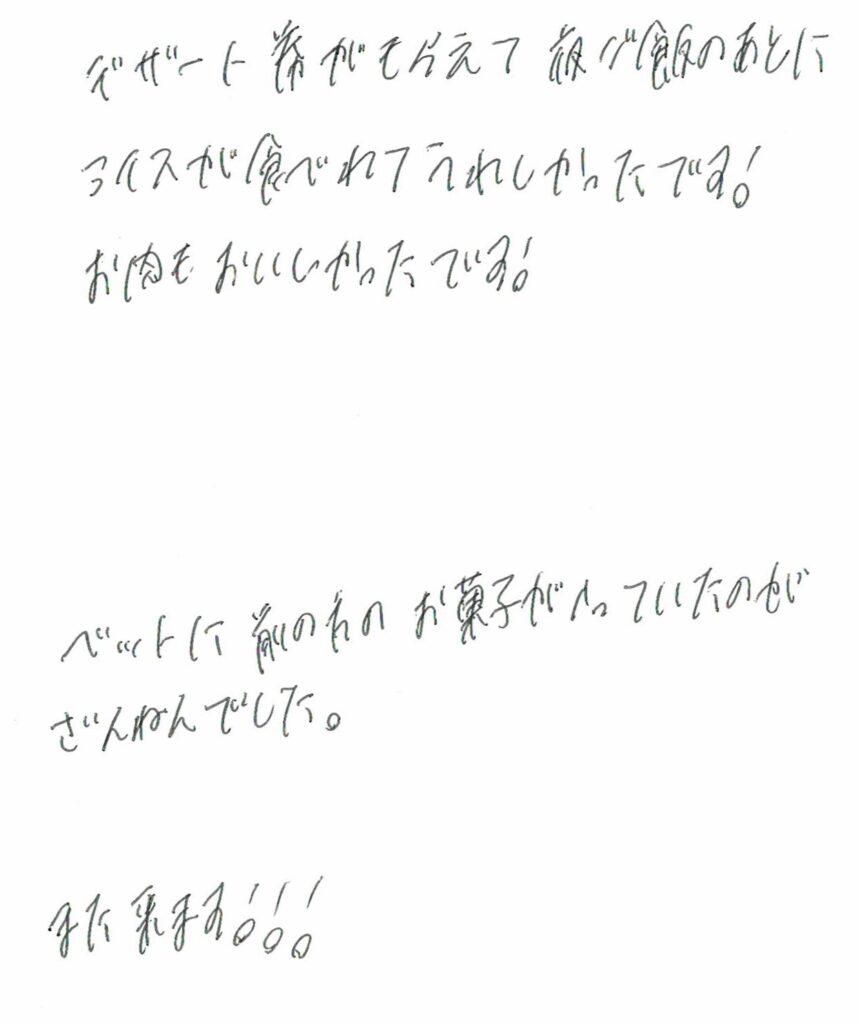 デザート券がもらえて 夜ご飯のあとに
アイスが食べれてうれしかったです!
お肉もおいしかったです!
ベットに前の方の お菓子が入っていたのが
ざんねんでした。
また来ます!!!